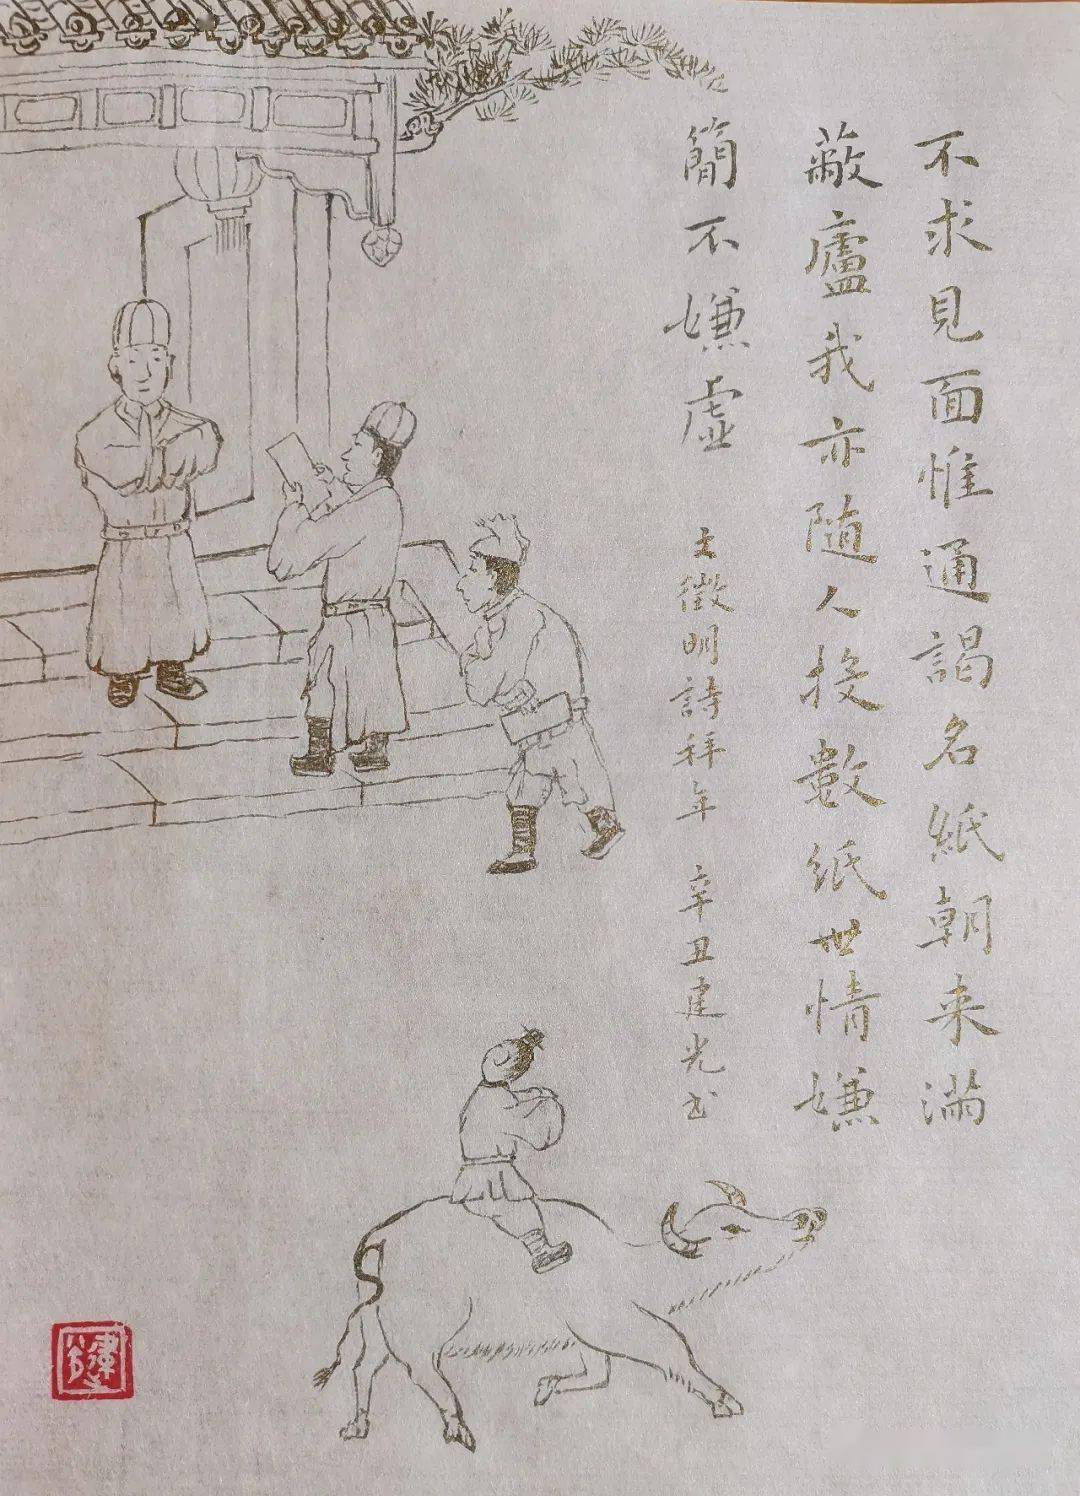 不求見面惟通謁名紙朝来滿
蔽廬我亦随人投數紙世情嫌
簡不嫌虛
文徵明詩拜年 辛丑建光书